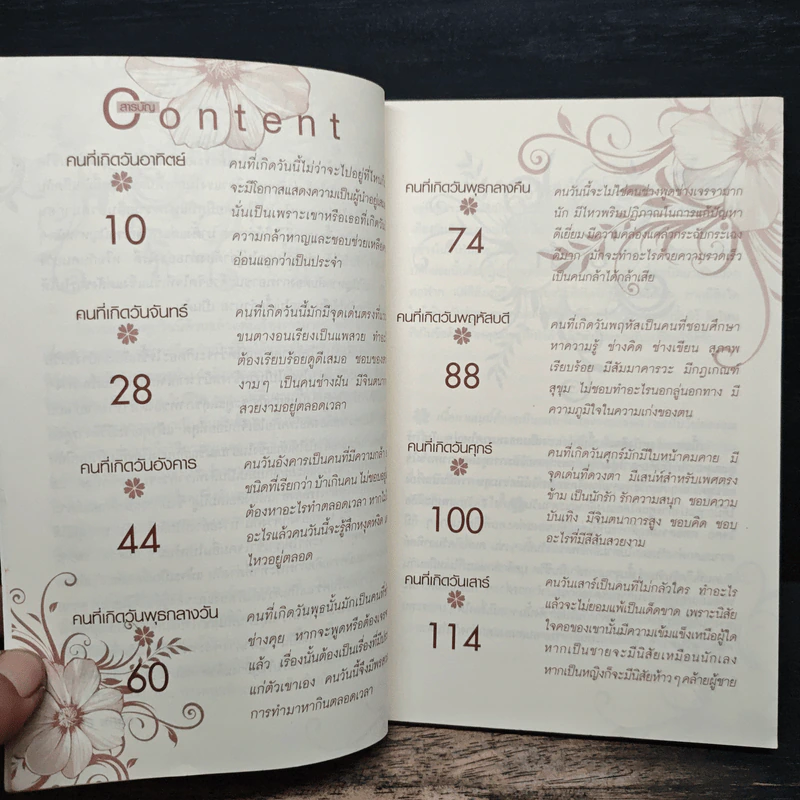 สารบัญ
Content
คนที่เกิดวันอาทิตย์
10
คนที่เกิดวันนี้ไม่ว่าจะไปอยู่ที่ไหนก็
จะมีโอกาสแสดงความเป็นผู้นำอยู่เสมอ
นั่นเป็นเพราะเขาหรือเธอที่เกิดวัน
ความกล้าหาญและชอบช่วยเหลือ
อ่อนแอกว่าเป็นประจำ
คนที่เกิดวันจันทร์
28
คนที่เกิดวันนี้มักมีจุดเด่นตรงที่
ขนตางอนเรียงเป็นแพสวย ทำอะ
ต้องเรียบร้อยดูดีเสมอ ชอบของ
งามๆ เป็นคนช่างฝัน มีจินตนา
สวยงามอยู่ตลอดเวลา
คนที่เกิดวันอังคาร
44
คนวันอังคารเป็นคนที่มีความกล้า
ชนิดที่เรียกว่า บ้าเกินคน ไม่ชอบอยู่
ต้องหาอะไรทำตลอดเวลา หากไม่
อะไรแล้วคนวันนี้จะรู้สึกหงุดหงิด
ไหวอยู่ตลอด
คนที่เกิดวันพุธกลางวัน
60
คนที่เกิดวันพุธนั้นมักเป็นคนที่
ช่างคุย หากจะพูดหรือต้องเจรจา
แล้ว เรื่องนั้นต้องเป็นเรื่องที่มีประ
แก่ตัวเขาเอง คนวันนี้จึงมีพรส
การทำมาหากินตลอดเวลา
คนที่เกิดวันพุธกลางคืน
74
คนวันนี้จะไม่ใช่คนช่างพูดช่างเจรจามาก
นัก มีไหวพริบปฏิภาณในการแก้ปัญหา
ดีเยี่ยม มีความคล่องแคล่วกระฉับกระเฉง
ดีมาก มักจะทำอะไรด้วยความรวดเร็ว
เป็นคนกล้าได้กล้าเสีย
คนที่เกิดวันพฤหัสบดี
88
คนที่เกิดวันพฤหัสเป็นคนที่ชอบศึกษา
หาความรู้ ช่างคิด ช่างเขียน สุภาพ
เรียบร้อย มีสัมมาคารวะ มีกฎเกณฑ์
สุขุม ไม่ชอบทำอะไรนอกลู่นอกทาง มี
ความภูมิใจในความเก่งของตน
คนที่เกิดวันศุกร์
100
คนที่เกิดวันศุกร์มักมีใบหน้าคมคาย มี
จุดเด่นที่ดวงตา มีเสน่ห์สำหรับเพศตรง
ข้าม เป็นนักรัก รักความสนุก ชอบความ
บันเทิง มีจินตนาการสูง ชอบคิด ชอบ
อะไรที่มีสีสันสวยงาม
คนที่เกิดวันเสาร์
114
คนวันเสาร์เป็นคนที่ไม่กลัวใคร ทำอะไร
แล้วจะไม่ยอมแพ้เป็นเด็ดขาด เพราะนิสัย
ใจคอของเขานั้นมีความเข้มแข็งเหนือผู้ใด
หากเป็นชายจะมีนิสัยเหมือนนักเลง
หากเป็นหญิงก็จะมีนิสัยห้าวๆ คล้ายผู้ชาย